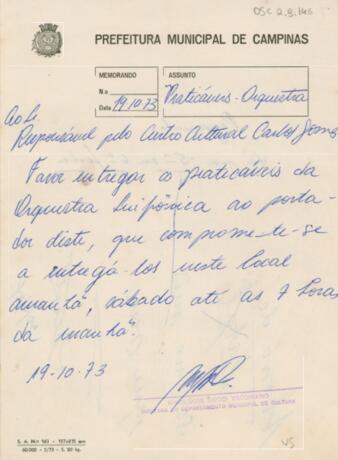 OSC 2.9.146
PREFEITURA MUNICIPAL DE CAMPINAS
MEMORANDO
N.o
Data 19.10.73
ASSUNTO
Praticáveis - Orquestra
Ao Sr.
Responsável pelo Centro Cultural Carlos Gomes
Favor entregar os praticáveis da
Orquestra Sinfônica ao porta-
dor dêste, que compromete-se
a entregá-los neste local
amanhã, sábado até as 7 horas
da manhã.
19-10.73
DEPARTAMENTO MUNICIPAL DE CULTURA
S. A. N.o 140 - 157x215 mm
60.000 - 5/73 - S. 50 kg.
VS